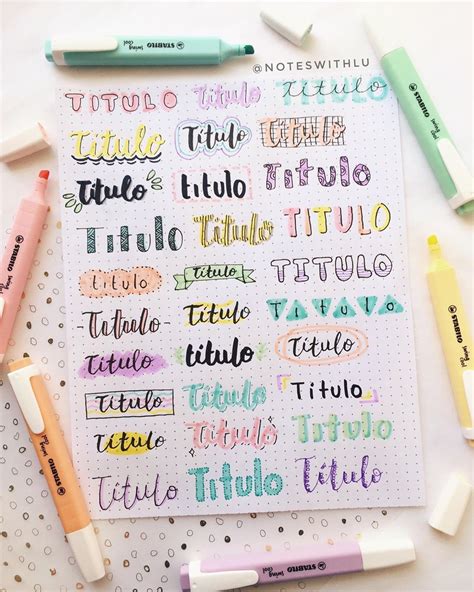 STABILO swing cool
@NOTESWITHLU
TITULO Titulo Titulo
Titulo Titulo Titulo
Titulo Titulo TITULO
Titulo Titulo TITULO
Titulo Titulo TITULO
Titulo Titulo TITULO
Titulo titulo Titulo
Titulo Titulo Titulo
Titulo Titulo Titulo
Titulo Titulo Titulo
STABILO swing cool
STABILO swing cool
STABILO swing cool
STABILO swing cool
STABILO swing cool